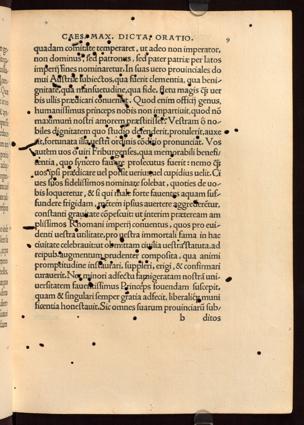 CAES. MAX. DICTA ORATIO. 9
quadam comitate temperaret, ut adeo non imperator,
non dominus, sed patronus, sed pater patriæ per latos
imperij fines nominaretur. In suas uero prouinciales do
mui Austriæ subiectos, qua fuerit clementia, qua benig
nitate, qua mansuetudine, qua fide, magis q̃ uer
bis ullis prædicari conuenit. Quod enim officij genus,
humanissimus princeps nobis non impartijt, quod nõ
maximum nostri amorem præstitit. Vestram õ no
bilem dignitatem quo studio defenderit, prouulerit, auxe
rit, fortunata illa uestri ordinis conditio pronunciat. Vos
autem uos o uiri Friburgenses, qua memorabili benefi
centia, quo syncero fauore prosecutus fuerit: nemo
uos ipsi prædicare uel potit uerius uel cupidius uelit. Ci
ues suos fidelissimos nominare solebat, quoties de uo-
bis loqueretur, & si qui male forte fauentes aquam suf-
fundere frigidam, ipsius auertere aggrederetur,
constanti grauitate cõpescuit ut interim præteream am
plissimos Rhomani imperij conuentus, quos pro eui
denti uestra utilitate, pro uestra immortali fama in hac
ciuitate celebrauit: ut omittam ciuilia uestra statuta, ad
reipub. augmentum, prudenter composita, qua animi
promptitudine instaurari, suppleri, erigi, & confirmari
curauerit. Nec minori adfectu famigeratam nostra uni-
uersitatem fauentissimus Princeps fouendam suscepit,
quam & singulari semper gratia adfecit, liberalieq; muni
ficentia honestauit. Sic omnes suarum prouinciarũ sub-
b ditos